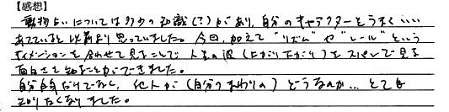 【感想】
動物占いについては多少の知識(?)があり、自分のキャラクターとうまく‥‥
あっていると以前より思っていました。今回、加えて"リズム"や"レール"という
イメージも合わせて見ることで、人生の波(上がり下がり)を スパンで見る
面白さを知ることができました。
自分自身だけでなく、他人が(自分のまわりの)どうなのか… とても
知りたくなりました。